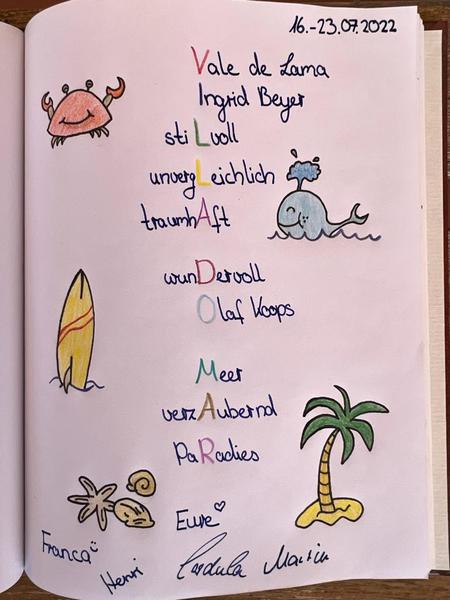 16.-23.07.2022
Vale de Lama
Ingrid Beyer
stiLvoll
unvergLeichlich
traumhAft
wunDervoll
Olaf Koops
Meer
verzAubernd
PaRadies
Eure
Franca
Henri
Cordula Martin